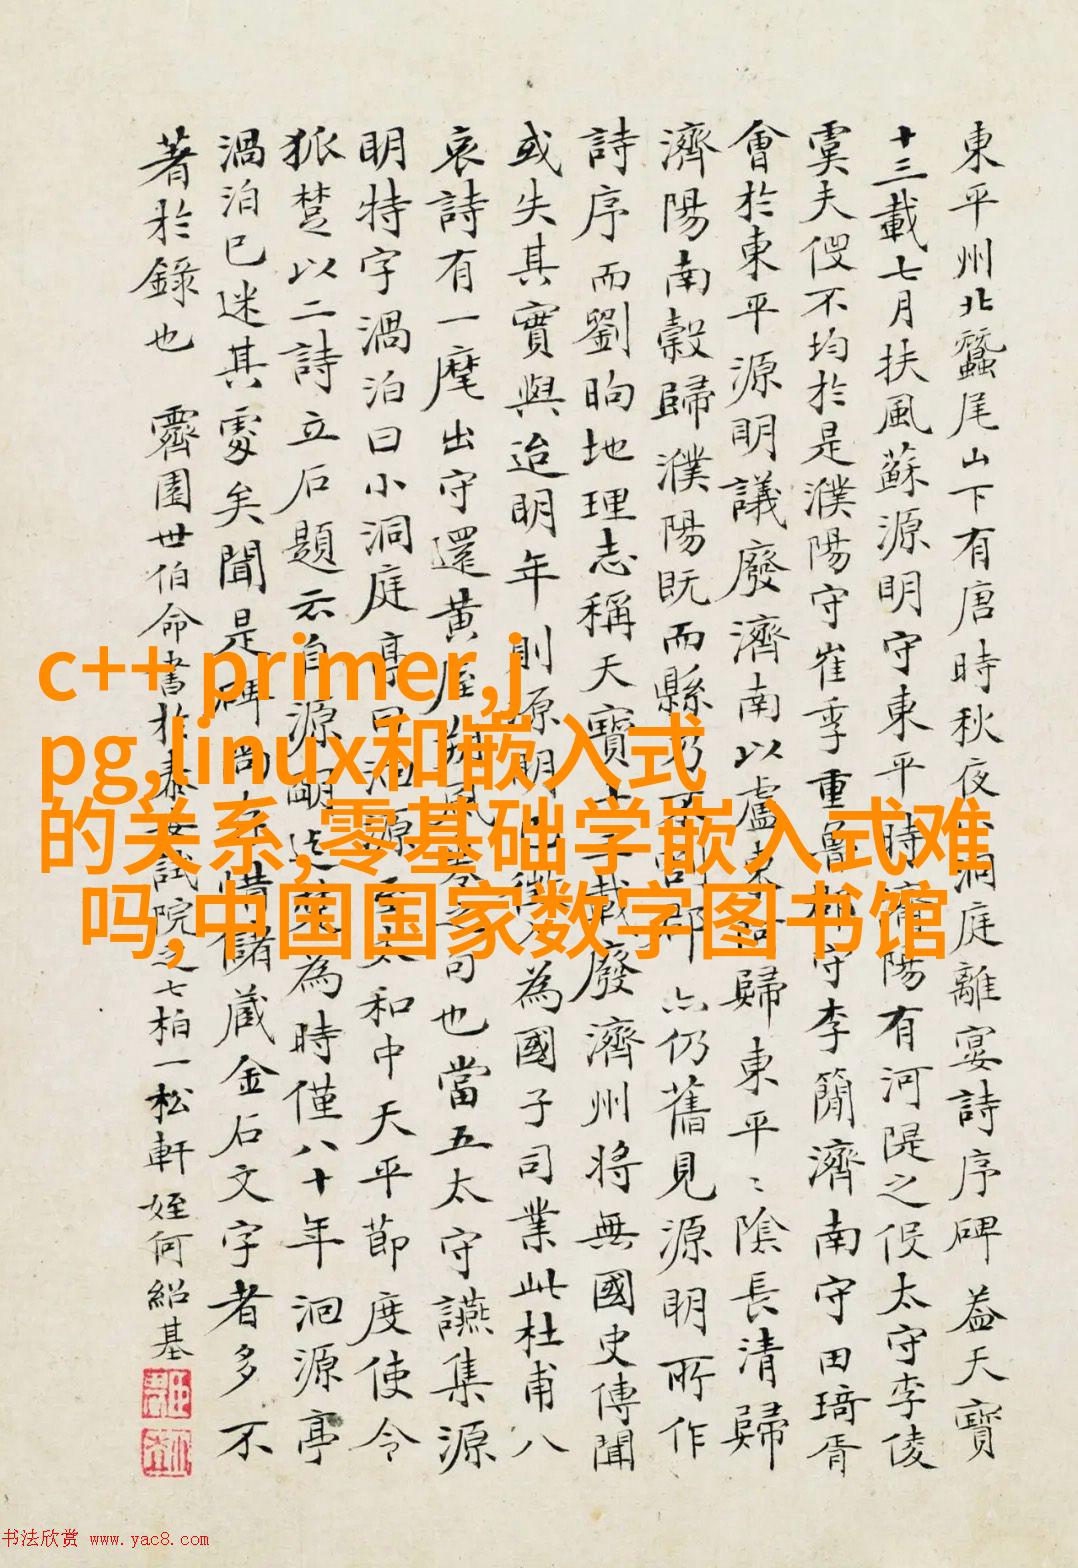 東平州北蠶尾山下有唐時秋夜洞庭離宴詩序碑蓋天寶
十三載七月扶風蘇源明守東平時陽有河隄之役太守李倰
虞夫役不均於是濮陽守崔季重魯郡守李簡濟南守田琦胥
會於東平源明議廢濟南以盧東歸東平〻陰長清歸
濟陽南穀歸濮陽既而縣乃不郡亦仍舊見源明所作
詩序而劉昫地理志稱天寶十三載廢濟州將無國史傳聞
或失其實與迨明年則源明由徵入為國子司業此杜甫八
哀詩有一麾出守還黃屋朔風卷之句也當五太守讌集源
明特字渦泊曰小洞庭亭曰洄源至太和中天平節度使令
狐楚以二詩立石題云自源明迄茲為時僅八十年洄源亭
渦泊已迷其處矣聞是碑尚存惜儲藏金石文字者多不
著於錄也 霽園世伯命書於泰安試院之七柏一松軒 姪何紹基
c++ primer,j
pg,linux和嵌入式
的关系,零基础学嵌入式难
吗,中国国家数字图书馆
书法欣赏 www.yac8.com